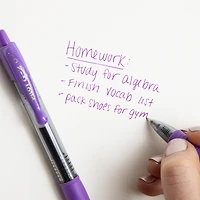 Homework:
- Study for algebra
- Finish vocab list
- pack shoes for gym